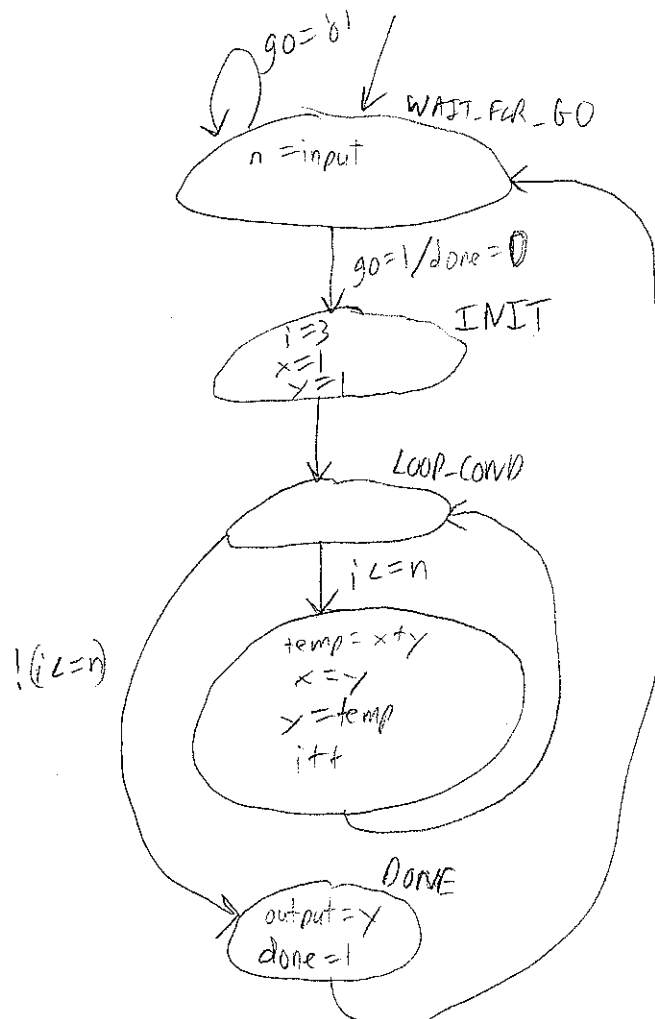 go='0'
WAIT_FOR_GO
n=input
go=1/done=0
INIT
i=3
x=1
y=1
LOOP_COND
i<=n
!(i<=n)
temp=x+y
x=y
y=temp
i++
DONE
output=y
done=1